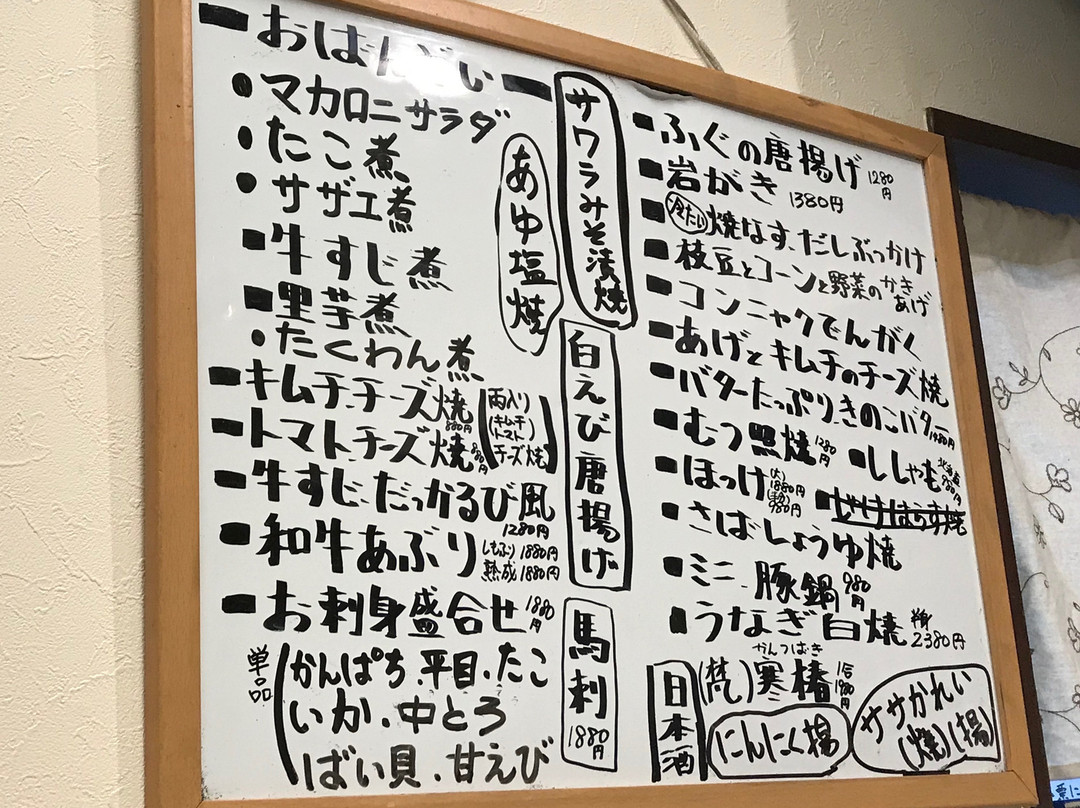 おばんざい
・マカロニサラダ
・たこ煮
・サザエ煮
牛すじ煮
里芋煮
・たくわん煮
キムチチーズ焼 880円
トマトチーズ焼 880円
両入り
(キムチ
トマト)
チーズ焼
牛すじ、だっかるび風 1280円
和牛あぶり
しもふり 1880円
熟成 1880円
お刺身盛合せ 1880円
単品
かんぱち、平目、たこ
いか、中とろ
ばい貝、甘えび
あゆ塩焼
サワラみそ漬焼
白えび唐揚げ
馬刺 1880円
ふぐの唐揚げ 1280円
岩がき 1380円
冷たい 焼なす、だしぶっかけ
枝豆とコーンと野菜のかきあげ
コンニャクでんがく
あげとキムチのチーズ焼
バターたっぷりきのこバター 1480円
むつ照焼 1280円
ししゃも 980円
ほっけ
(大) 1880円
980円
さばしょうゆ焼
ミニ豚鍋 980円
うなぎ白焼 2380円
日本酒
(梵) 寒椿
かんつばき
にんにく揚
ササかれい
(焼)(揚)